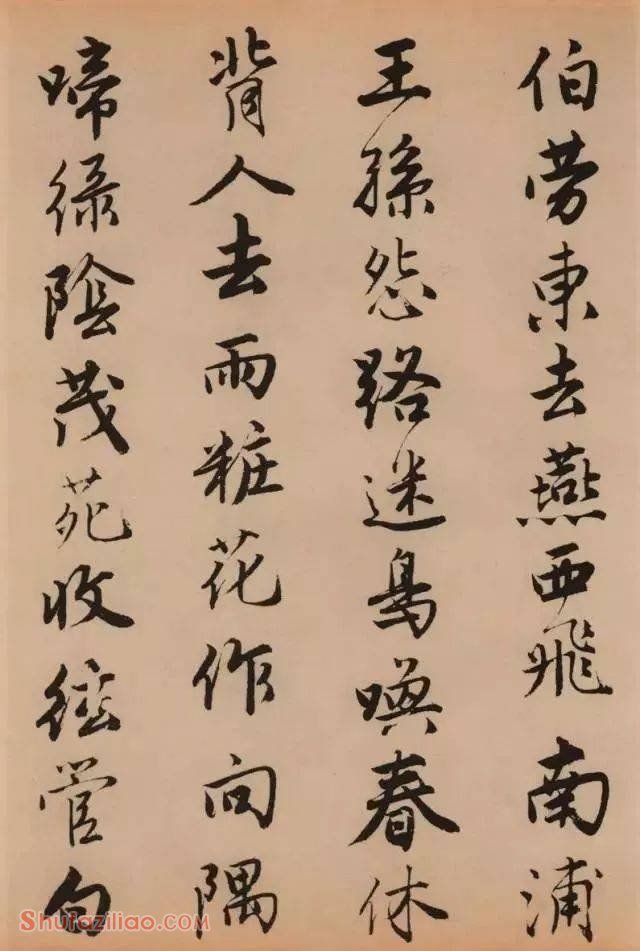 伯劳東去燕西飛南浦
王孫怨路迷鳥喚春休
背人去雨粧花作向隅
啼綠陰茂苑收絃管白
Shufaziliao.com